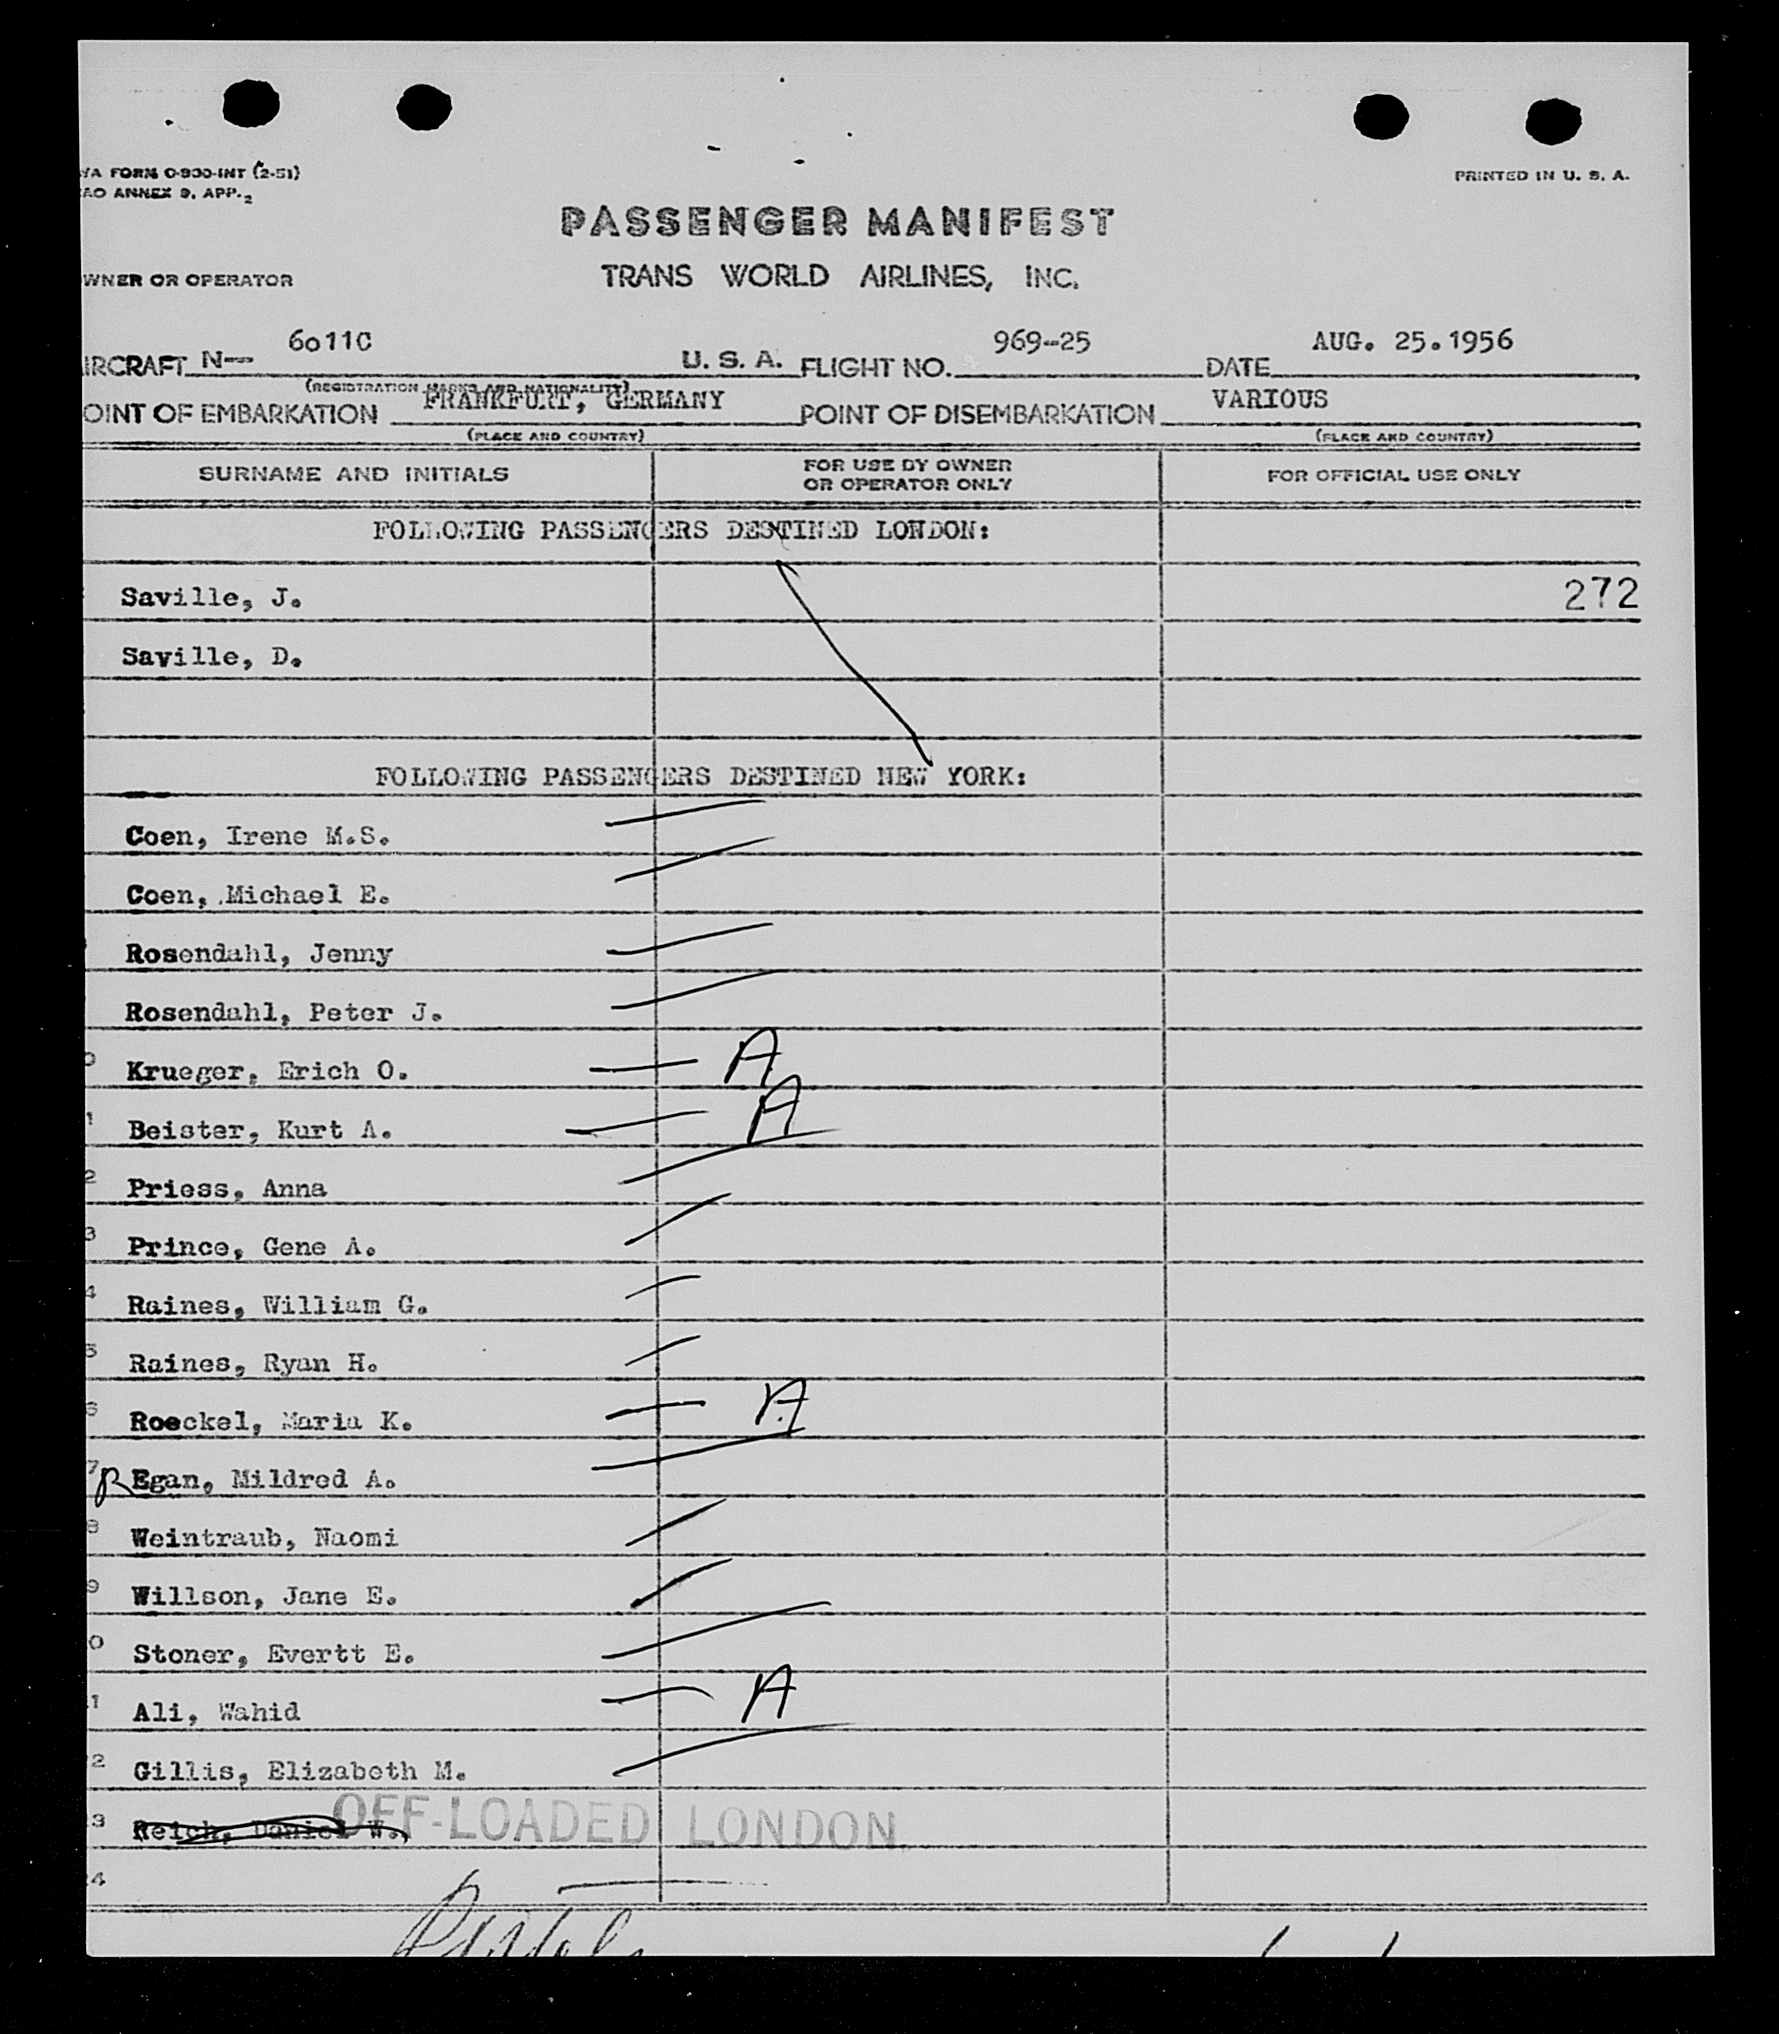 WA FORM O-800-INT (2-51)
AO ANNEX 9, APP. 2
PRINTED IN U. S. A.
PASSENGER MANIFEST
WNER OR OPERATOR
TRANS WORLD AIRLINES, INC.
IRCRAFT N— 6011C U. S. A. FLIGHT NO. 969-25 DATE AUG. 25.1956
(REGISTRATION MARKS AND NATIONALITY)
OINT OF EMBARKATION FRANKFURT, GERMANY POINT OF DISEMBARKATION VARIOUS
(PLACE AND COUNTRY) (PLACE AND COUNTRY)
SURNAME AND INITIALS FOR USE BY OWNER OR OPERATOR ONLY FOR OFFICIAL USE ONLY
FOLLOWING PASSENGERS DESTINED LONDON:
Saville, J. 272
Saville, D.
FOLLOWING PASSENGERS DESTINED NEW YORK:
Coen, Irene M.S.
Coen, Michael E.
Rosendahl, Jenny
Rosendahl, Peter J.
0 Krueger, Erich O. A
1 Beister, Kurt A. A
2 Priess, Anna
3 Prince, Gene A.
4 Raines, William G.
5 Raines, Ryan H.
6 Roeckel, Maria K. A
7 R Egan, Mildred A.
8 Weintraub, Naomi
9 Willson, Jane E.
0 Stoner, Evertt E.
1 Ali, Wahid A
2 Gillis, Elizabeth M.
3 Reich, Daniel W. OFF-LOADED LONDON
4